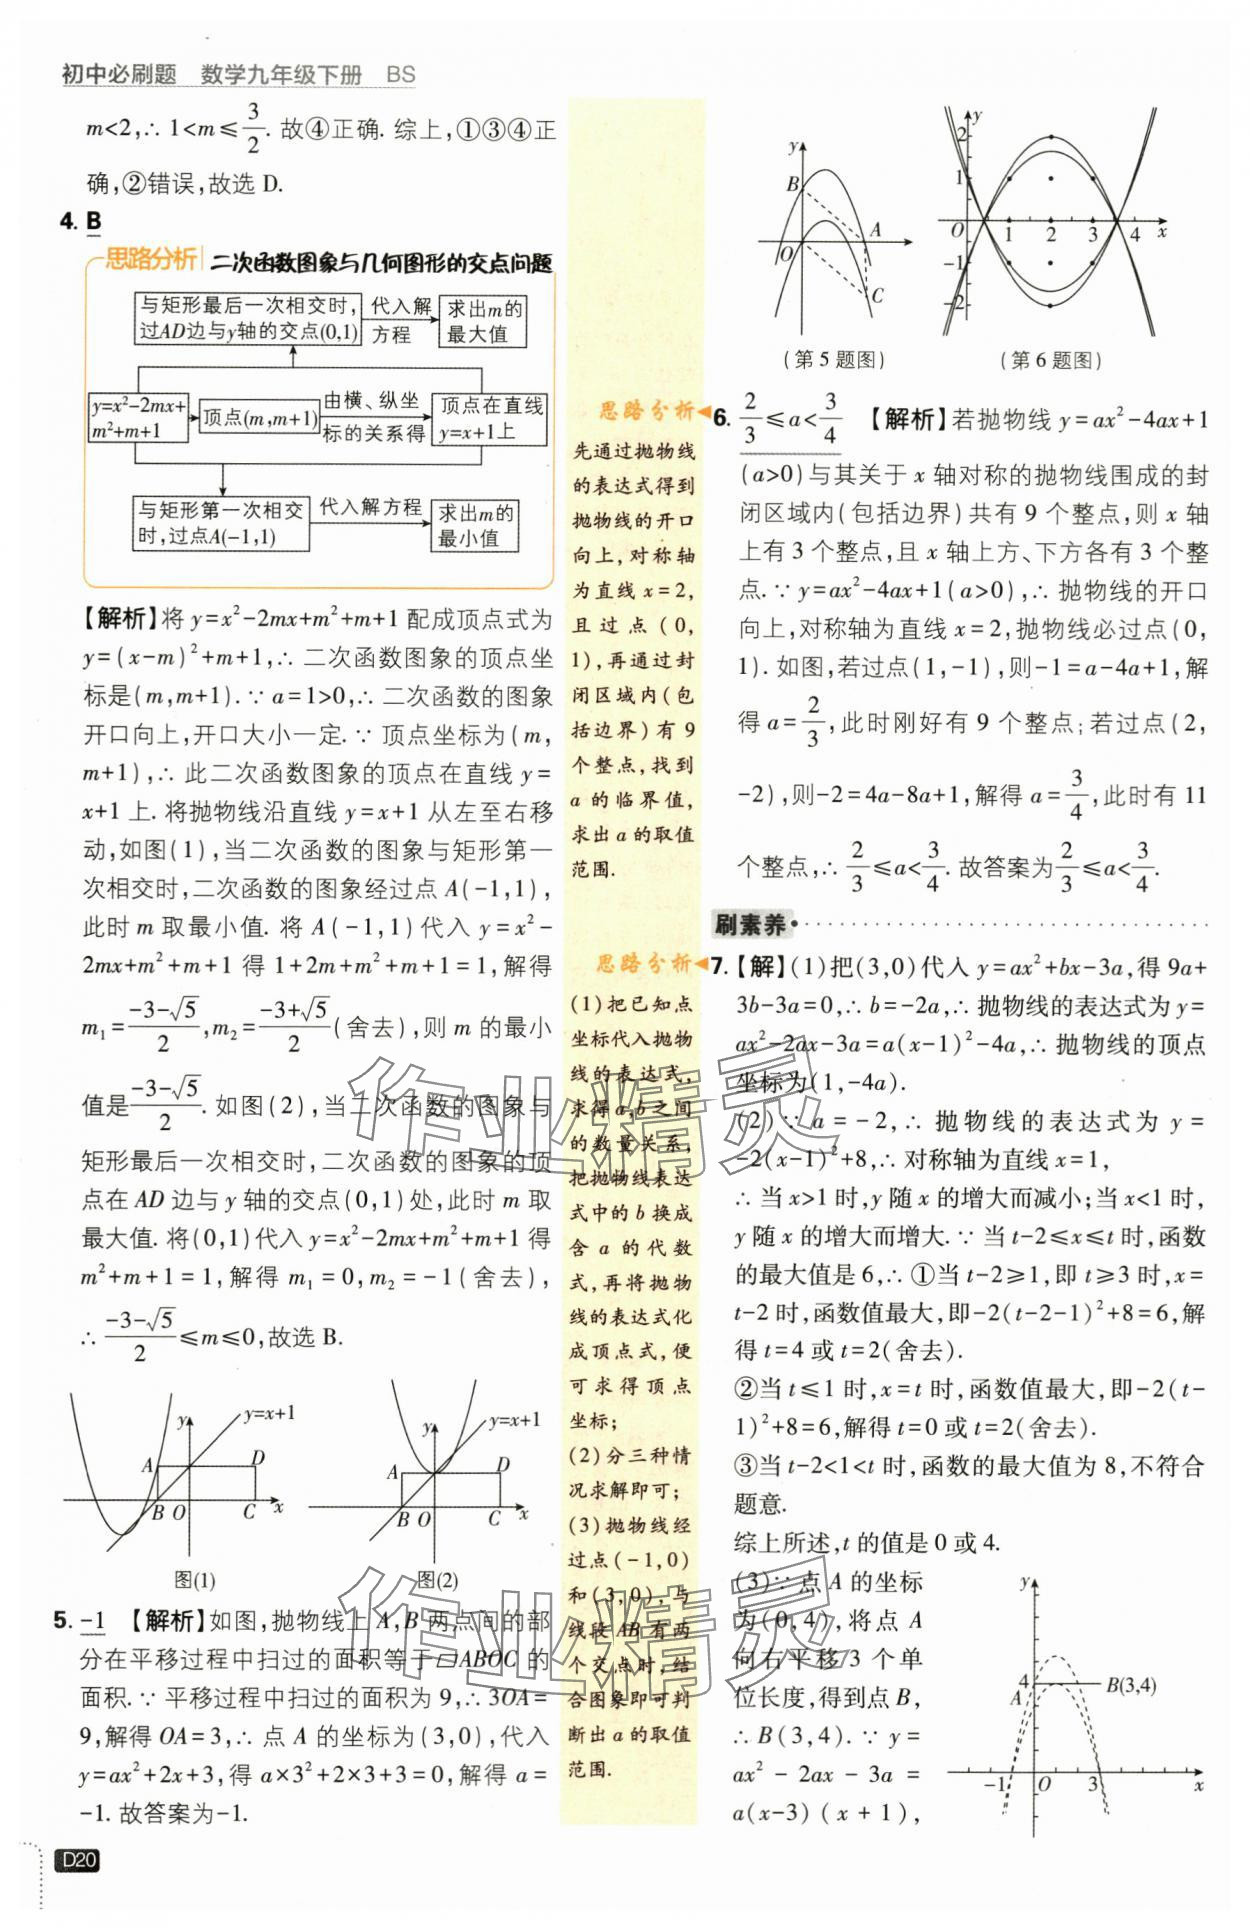 初中必刷题 数学九年级下册 BS
m<2,∴1<m≤3/2. 故④正确. 综上,①③④正
确,②错误,故选 D.
4. B
思路分析 二次函数图象与几何图形的交点问题
与矩形最后一次相交时,
过AD边与y轴的交点(0,1)
代入解
方程
求出m的
最大值
y=x²-2mx+
m²+m+1
顶点(m,m+1)
由横、纵坐
标的关系得
顶点在直线
y=x+1上
与矩形第一次相交
时,过点A(-1,1)
代入解方程
求出m的
最小值
【解析】将 y=x²-2mx+m²+m+1 配成顶点式为
y=(x-m)²+m+1,∴二次函数图象的顶点坐
标是(m,m+1).∵a=1>0,∴二次函数的图象
开口向上,开口大小一定.∵顶点坐标为(m,
m+1),∴此二次函数图象的顶点在直线 y=
x+1 上. 将抛物线沿直线 y=x+1 从左至右移
动,如图(1),当二次函数的图象与矩形第一
次相交时,二次函数的图象经过点 A(-1,1),
此时 m 取最小值. 将 A(-1,1)代入 y=x²-
2mx+m²+m+1 得 1+2m+m²+m+1=1,解得
m₁=(-3-√5)/2,m₂=(-3+√5)/2(舍去),则 m 的最小
值是(-3-√5)/2. 如图(2),当二次函数的图象与
矩形最后一次相交时,二次函数的图象的顶
点在 AD 边与 y 轴的交点(0,1)处,此时 m 取
最大值. 将(0,1)代入 y=x²-2mx+m²+m+1 得
m²+m+1=1,解得 m₁=0,m₂=-1(舍去),
∴(-3-√5)/2≤m≤0,故选 B.
y y=x+1
A D
B O C x
图(1)
y y=x+1
A D
B O C x
图(2)
5. -1 【解析】如图,抛物线上 A,B 两点间的部
分在平移过程中扫过的面积等于▱ABOC 的
面积.∵平移过程中扫过的面积为 9,∴3OA=
9,解得 OA=3,∴点 A 的坐标为(3,0),代入
y=ax²+2x+3,得 a×3²+2×3+3=0,解得 a=
-1. 故答案为-1.
D20
思路分析
先通过抛物线
的表达式得到
抛物线的开口
向上,对称轴
为直线 x=2,
且过点(0,
1),再通过封
闭区域内(包
括边界)有 9
个整点,找到
a 的临界值,
求出 a 的取值
范围.
思路分析
(1)把已知点
坐标代入抛物
线的表达式,
求得a,b之间
的数量关系,
把抛物线表达
式中的 b 换成
含 a 的代数
式,再将抛物
线的表达式化
成顶点式,便
可求得顶点
坐标;
(2)分三种情
况求解即可;
(3)抛物线经
过点(-1,0)
和(3,0),与
线段 AB 有两
个交点时,结
合图象即可判
断出 a 的取值
范围.
y
B
O A x
C
(第5题图)
y
2
1
O 1 2 3 4 x
-1
-2
(第6题图)
6. 2/3≤a<3/4 【解析】若抛物线 y=ax²-4ax+1
(a>0)与其关于 x 轴对称的抛物线围成的封
闭区域内(包括边界)共有 9 个整点,则 x 轴
上有 3 个整点,且 x 轴上方、下方各有 3 个整
点.∵y=ax²-4ax+1(a>0),∴抛物线的开口
向上,对称轴为直线 x=2,抛物线必过点(0,
1). 如图,若过点(1,-1),则-1=a-4a+1,解
得 a=2/3,此时刚好有 9 个整点;若过点(2,
-2),则-2=4a-8a+1,解得 a=3/4,此时有 11
个整点,∴2/3≤a<3/4. 故答案为2/3≤a<3/4.
刷素养
7.【解】(1)把(3,0)代入 y=ax²+bx-3a,得 9a+
3b-3a=0,∴b=-2a,∴抛物线的表达式为 y=
ax²-2ax-3a=a(x-1)²-4a,∴抛物线的顶点
坐标为(1,-4a).
(2)∵a=-2,∴抛物线的表达式为 y=
-2(x-1)²+8,∴对称轴为直线 x=1,
∴当 x>1 时,y 随 x 的增大而减小;当 x<1 时,
y 随 x 的增大而增大.∵当 t-2≤x≤t 时,函数
的最大值是 6,∴①当 t-2≥1,即 t≥3 时,x=
t-2 时,函数值最大,即-2(t-2-1)²+8=6,解
得 t=4 或 t=2(舍去).
②当 t≤1 时,x=t 时,函数值最大,即-2(t-
1)²+8=6,解得 t=0 或 t=2(舍去).
③当 t-2<1<t 时,函数的最大值为 8,不符合
题意.
综上所述,t 的值是 0 或 4.
(3)∵点 A 的坐标
为(0,4),将点 A
向右平移 3 个单
位长度,得到点 B,
∴B(3,4).∵y=
ax²-2ax-3a=
a(x-3)(x+1),
y
4
A B(3,4)
-1 O 3 x
作业精灵
作业精灵